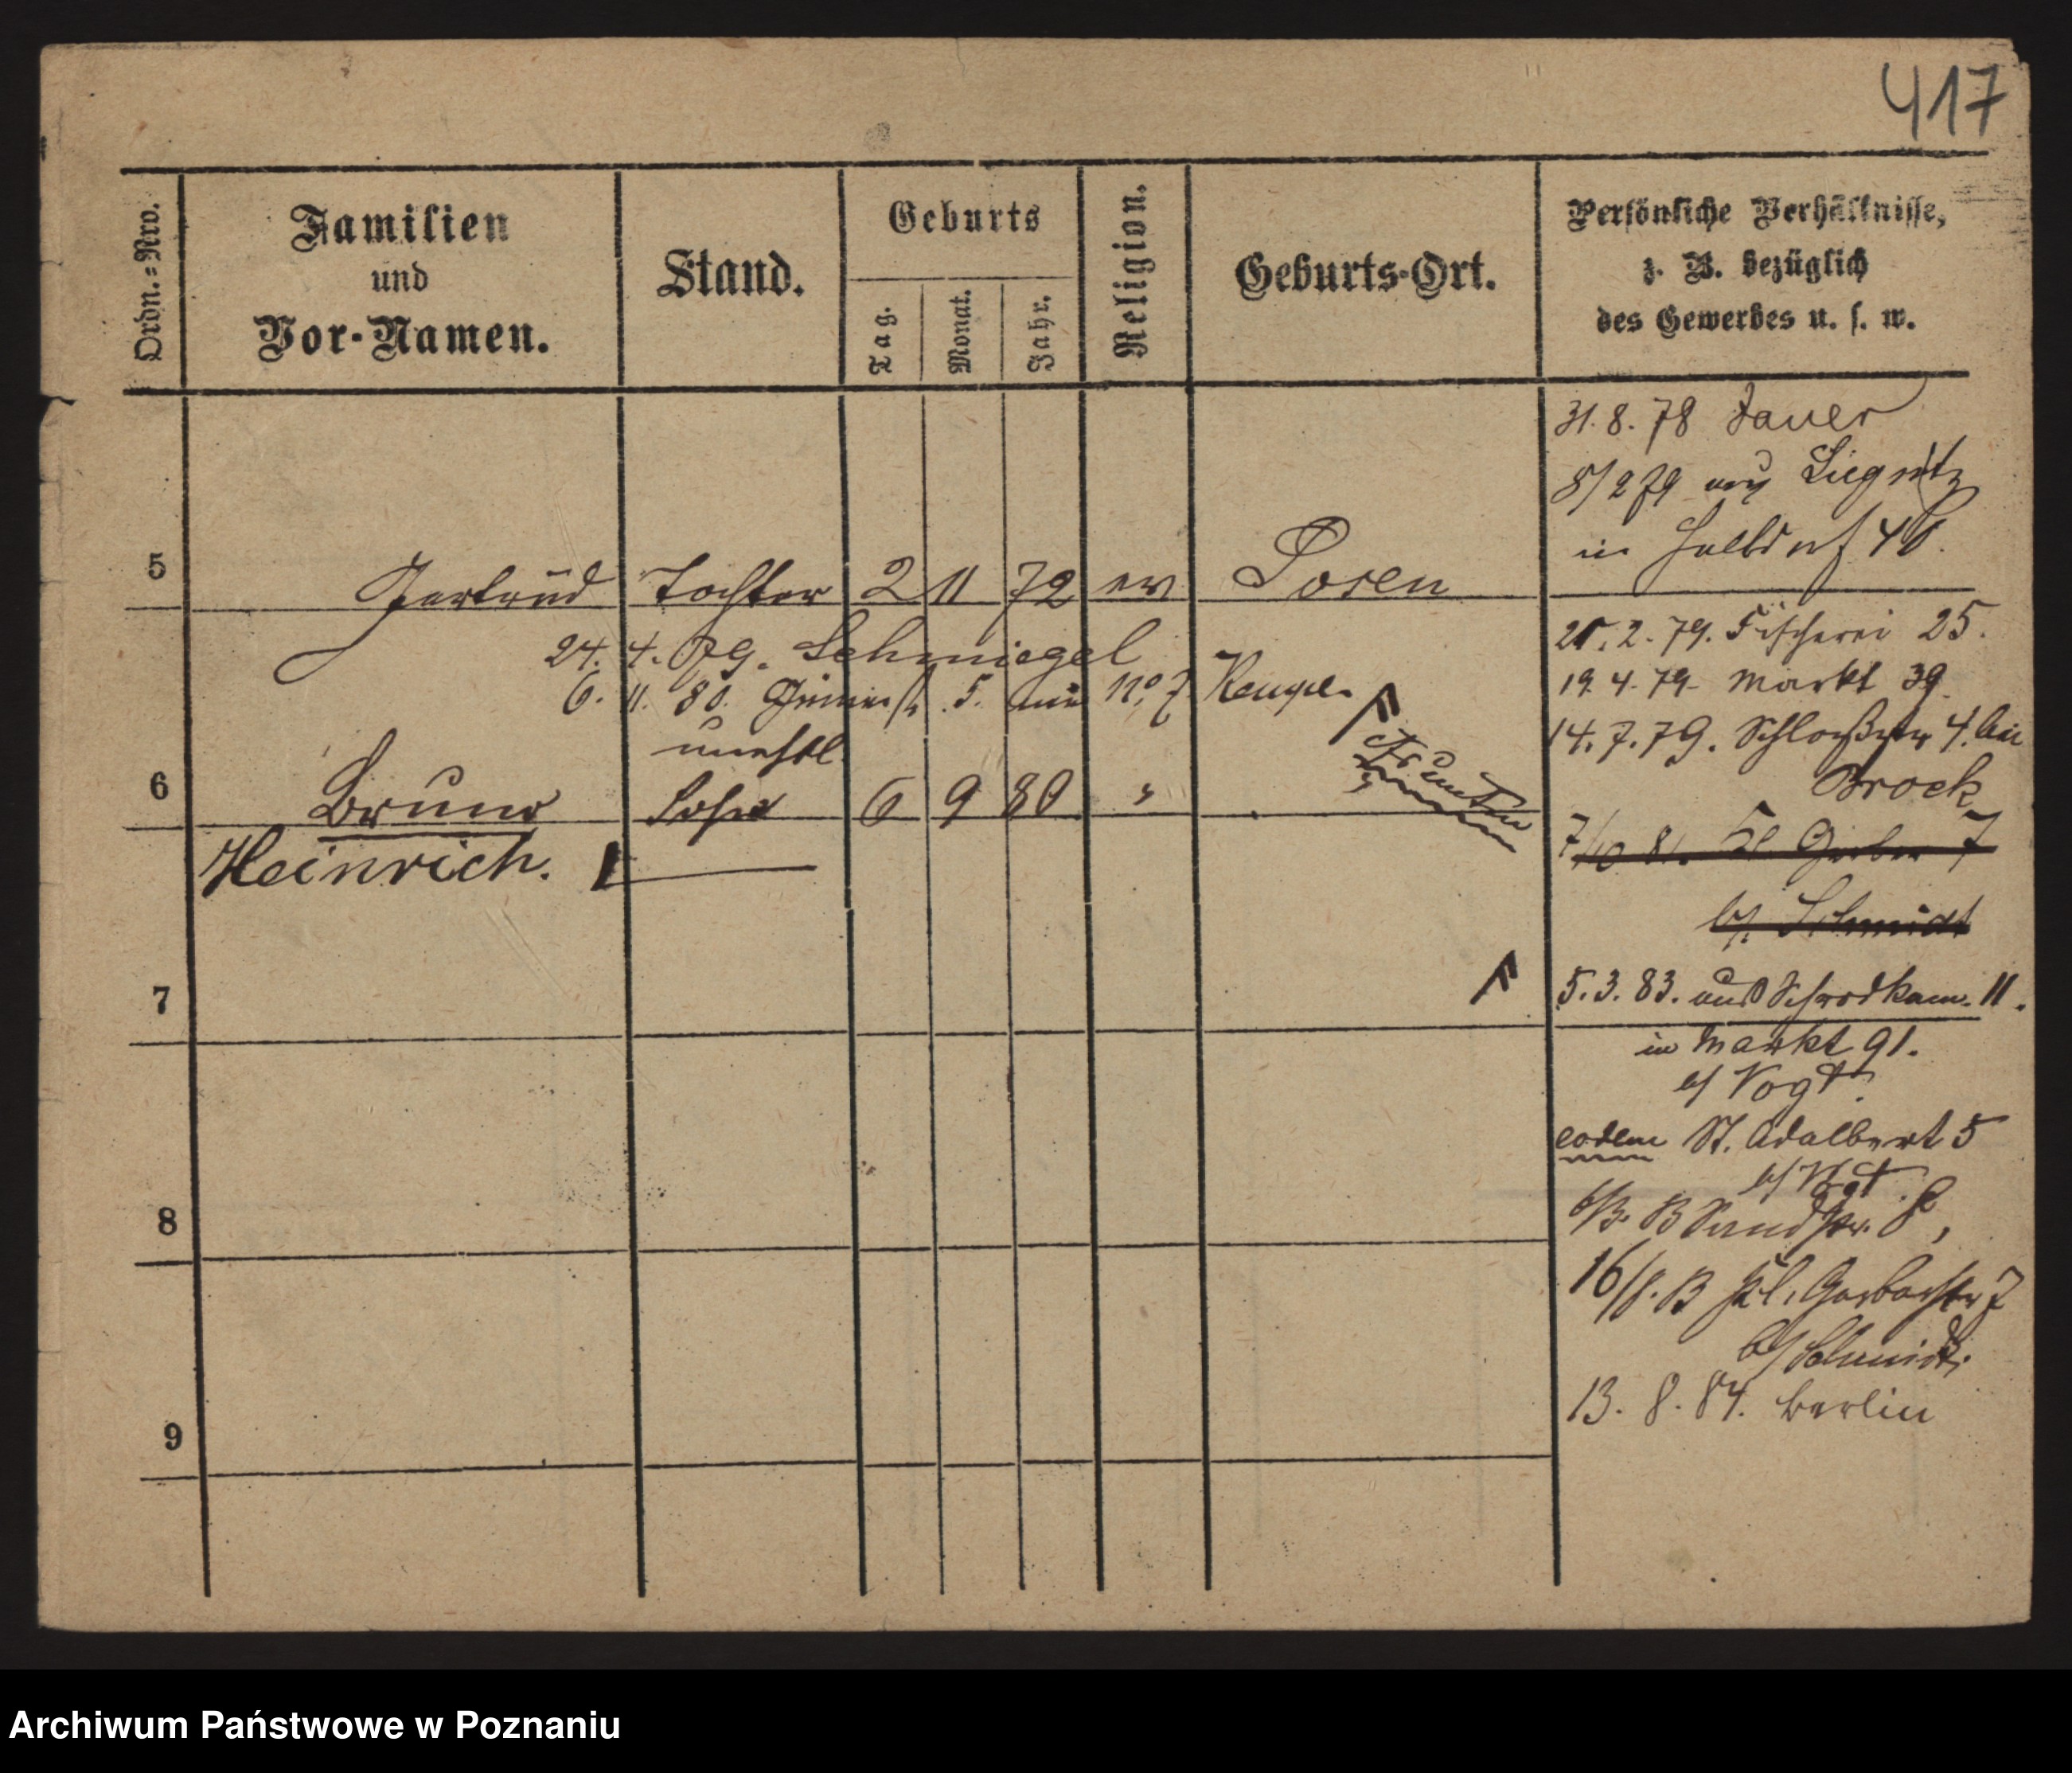 417
Ordn.=Nro.
Familien
und
Vor-Namen.
Stand.
Geburts
Tag.
Monat.
Jahr.
Religion.
Geburts-Ort.
Persönliche Verhältnisse,
z. B. bezüglich
des Gewerbes u. s. w.
31. 8. 78 Jauer
8/2 79 aus Liegnitz
in Halbdorf 40.
5 Gertrud Tochter 2 11 72 ev Posen
24. 4. 79. Schmiegel
6. 11. 80. 5. aus No 7
unehl.
6 Bruno Sohn 6 9 80 "
Heinrich.
21. 2. 79. Fischerei 25.
19. 4. 79. Markt 39.
14. 7. 79. Schloßstr 4. bei
Brock
7/10 81. Kl. Gerber 7
b/ Schmidt
7
5. 3. 83. aus Schrodkam. 11.
in Markt 91.
b/ Vogt.
eodem St. Adalbert 5
b/ Vogt
8
Sandstr. 8,
16/8. 83 Kl. Gerberstr 7
b/ Schmidt.
13. 8. 84. Berlin
9
Archiwum Państwowe w Poznaniu